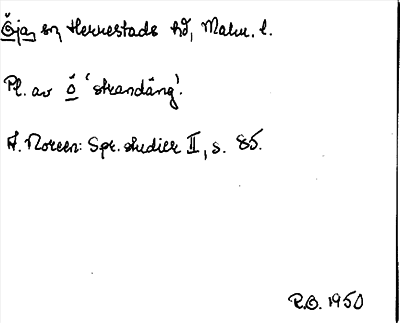 Öja, sn Herrestads hd, Malm. l.
Pl. av ö 'strandäng'.
A. Noreen: Spr. studier II, s. 85.
R.O. 1950